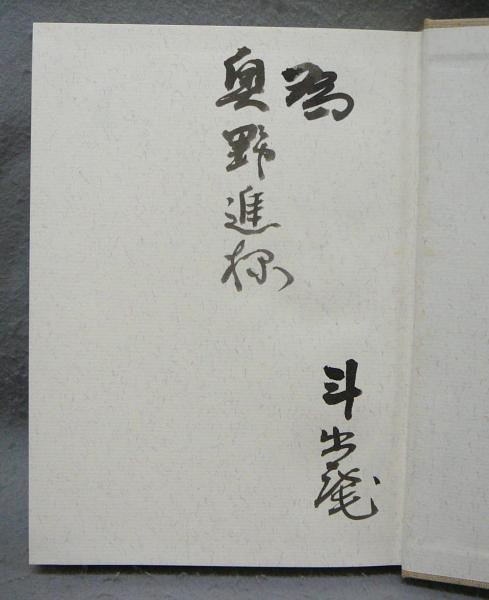 為
奥野進様
斗出庵